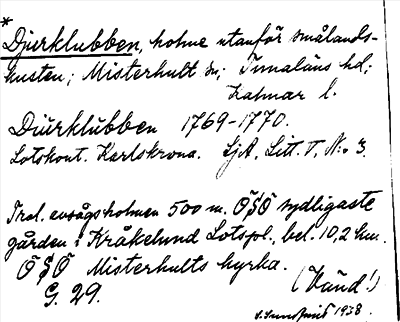 *
Djurklubben, holme utanför smålands-
kusten; Misterhult sn; Tunaläns hd;
Kalmar l.
Diúrklúbben 1769–1770.
Lotskont. Karlskrona. SjA, Litt. T, N:o 3.
Trol. holmen 500 m. ÖSÖ sydligaste
gården i Kråkelund Lotspl., bel. 10,2 km.
ÖSÖ Misterhults kyrka.
G. 29. (Vänd!)
1938.